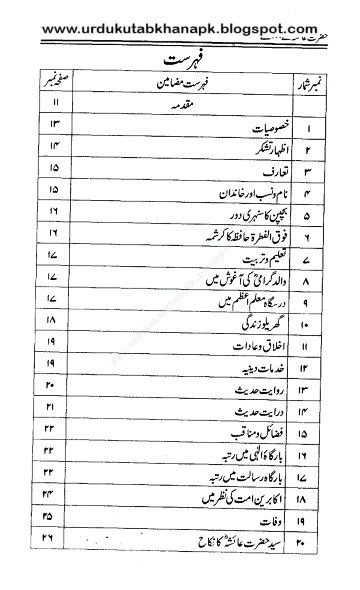 www.urdukutabkhanapk.blogspot.com
حضرت عائشہ
فہرست
نمبر شمار فہرست مضامین صفحہ نمبر
مقدمہ ۱۱
۱ خصوصیات ۱۳
۲ اظہار تشکر ۱۴
۳ تعارف ۱۵
۴ نام ونسب اور خاندان ۱۵
۵ بچپن کا سنہری دور ۱۶
۶ فوق الفطرۃ حافظہ کا کرشمہ ۱۶
۷ تعلیم و تربیت ۱۷
۸ والد گرامیؓ کی آغوش میں ۱۷
۹ درسگاہ معلم اعظم میں ۱۷
۱۰ گھریلو زندگی ۱۸
۱۱ اخلاق و عادات ۱۹
۱۲ خدمات دینیہ ۱۹
۱۳ روایت حدیث ۲۰
۱۴ درایت حدیث ۲۱
۱۵ فضائل و مناقب ۲۲
۱۶ بارگاہ الٰہی میں رتبہ ۲۲
۱۷ بارگاہ رسالت میں رتبہ ۲۲
۱۸ اکابرین امت کی نظر میں ۲۴
۱۹ وفات ۲۵
۲۰ سید حضرت عائشہؓ کا نکاح ۲۶